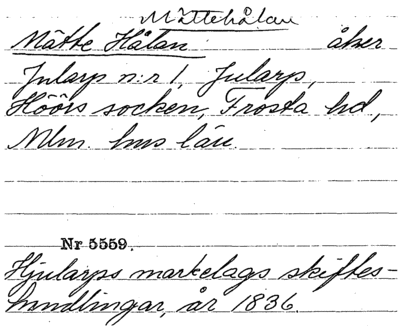 Måttehålan
Måtte Hålan åker
Jularp n:r 1, Jularp,
Höörs socken, Frosta hd,
Mlm. hus län.
Nr 5559.
Hjularps markelags skiftes-
handlingar, år 1836.